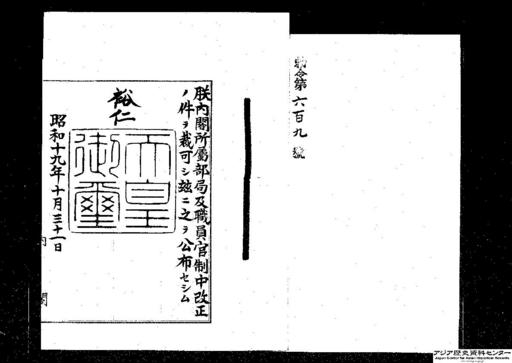 勅令第六百九號
朕內閣所屬部局及職員官制中改正
ノ件ヲ裁可シ茲ニ之ヲ公布セシム
裕仁
天皇御璽
昭和十九年十月三十一日
內閣
アジア歴史資料センター
Japan Center for Asian Historical Records